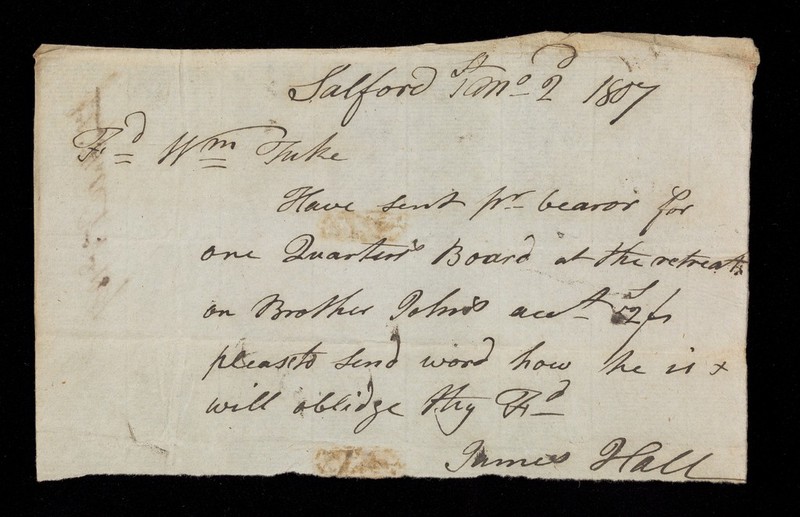 Salford 1st Mo 2d 1807
Fd Wm Tuke
Have sent pr bearor for
one Quarters Board at the retreat
on Brother Johns acct
pleas to send word how he is +
will oblidge thy Fd
James Hall